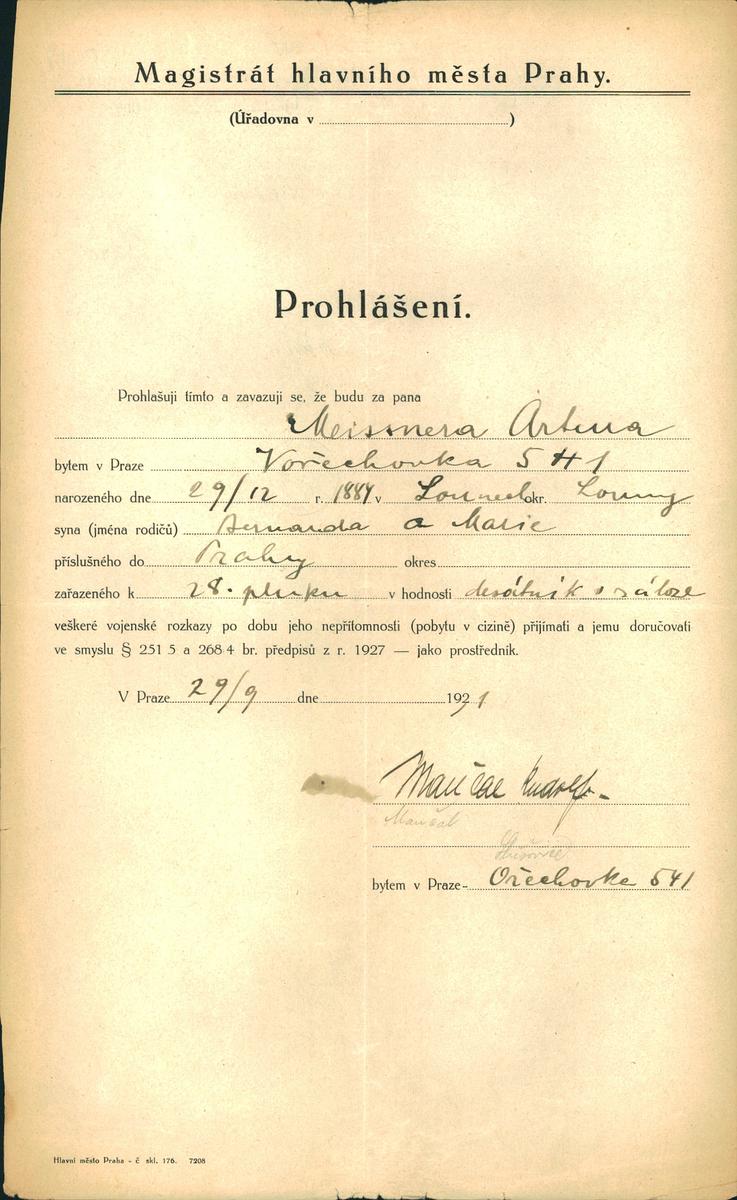 Magistrát hlavního města Prahy.
(Úřadovna v ............ )
Prohlášení.
Prohlašuji tímto a zavazuji se, že budu za pana
Meissnera Artura
bytem v Praze Vořechovka 541
narozeného dne 29/12 r. 1884 v Lounech okr. Louny
syna (jména rodičů) a Marie
příslušného do Prahy okres
zařazeného k 28. pluku v hodnosti desátník v záloze
veškeré vojenské rozkazy po dobu jeho nepřítomnosti (pobytu v cizině) přijímati a jemu doručovati
ve smyslu § 251 5 a 268 4 br. předpisů z r. 1927 — jako prostředník.
V Praze 29/9 dne 1931
Maučal Rudolf
Maučal
bytem v Praze - Ořechovka 541
Hlavní město Praha - č skl. 176. 7208